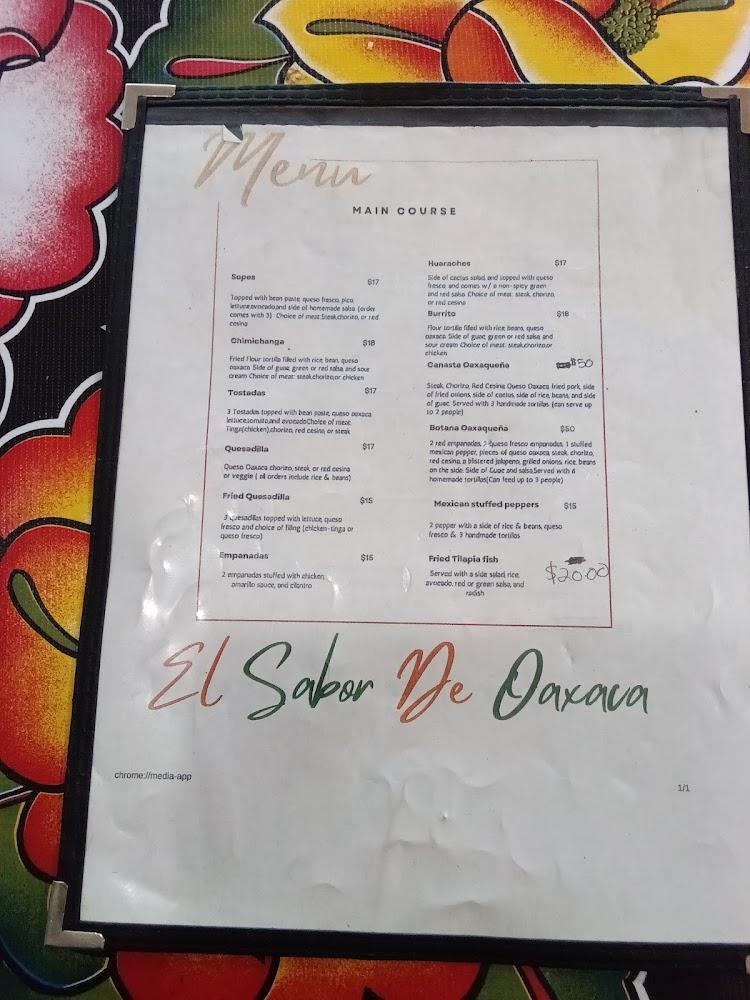 Menu
MAIN COURSE
Sopes $17
Topped with bean paste, queso fresco, pico,
lettuce,avocado,and side of homemade salsa (order
comes with 3) Choice of meat: Steak,chorizo, or red
cesina
Chimichanga $18
Fried Flour tortilla filled with rice, bean, queso
oaxaca Side of guac, green or red salsa and sour
cream Choice of meat: steak,chorizo,or chicken
Tostadas $17
3 Tostadas topped with bean paste, queso oaxaca
lettuce,tomato,and avocadoChoice of meat:
Tinga(chicken),chorizo, red cesina, or steak
Quesadilla $17
Queso Oaxaca chorizo, steak, or red cesina
or veggie ( all orders include rice & beans)
Fried Quesadilla $15
3 quesadillas topped with lettuce, queso
fresco and choice of filling (chicken-tinga or
queso fresco)
Empanadas $15
2 empanadas stuffed with chicken,
amarillo sauce, and cilantro
Huaraches $17
Side of cactus salad, and topped with queso
fresco, and comes w/ a non-spicy green
and red salsa Choice of meat: steak, chorizo,
or red cesina
Burrito $18
Flour tortilla filled with rice, beans, queso
oaxaca Side of guac, green or red salsa and
sour cream Choice of meat: steak,chorizo,or
chicken
Canasta Oaxaqueña $50
Steak, Chorizo, Red Cesina, Queso Oaxaca, fried pork, side
of fried onions, side of cactus, side of rice, beans, and side
of guac. Served with 3 handmade tortillas (can serve up
to 2 people)
Botana Oaxaqueña $50
2 red empanadas, 2 queso fresco empanadas, 1 stuffed
mexican pepper, pieces of queso oaxaca, steak, chorizo,
red cesina, a blistered jalapeno, grilled onions, rice, beans
on the side. Side of Guac and salsa,Served with 6
homemade tortillas(Can feed up to 3 people)
Mexican stuffed peppers $15
2 pepper with a side of rice & beans, queso
fresco & 3 handmade tortillas
Fried Tilapia fish $20.00
Served with a side salad, rice,
avocado, red or green salsa, and
radish
El Sabor De Oaxaca
chrome://media-app
1/1